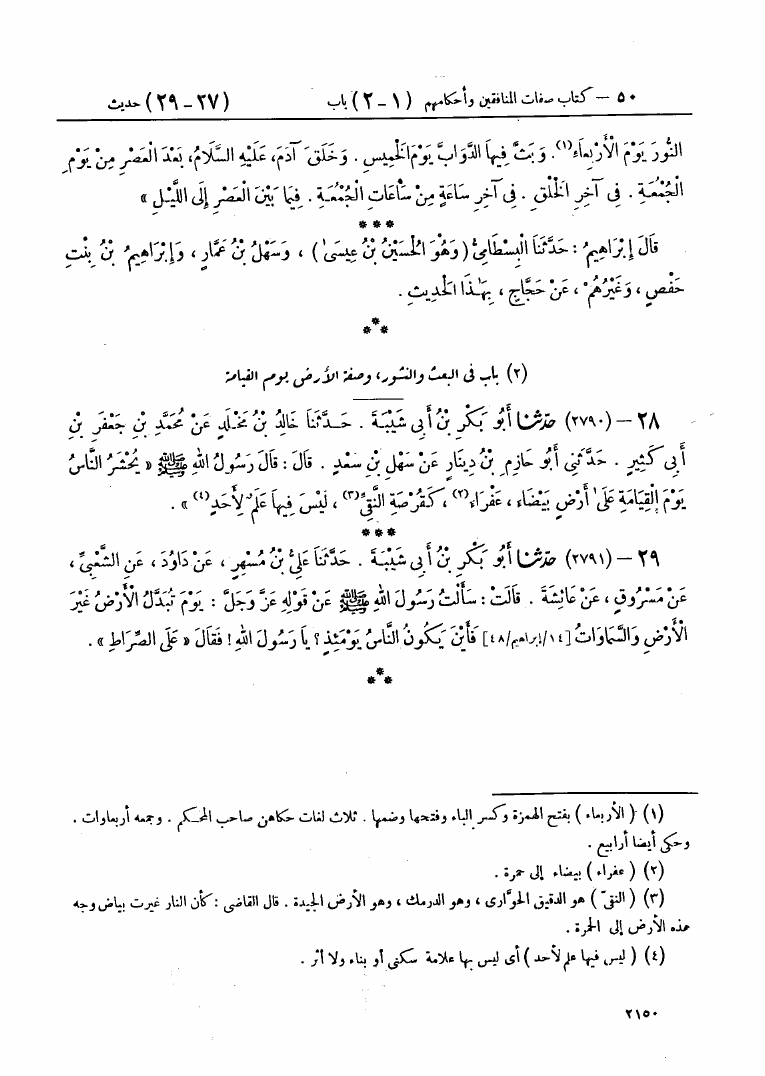 ٥٠ – كتاب صفات المنافقين وأحكامهم (١-٢) باب (٢٧-٢٩) حديث
النُّورَ يَوْمَ الْأَرْبِعَاءِ(١). وَبَثَّ فِيهَا الدَّوَابَّ يَوْمَ الْخَمِيسِ. وَخَلَقَ آدَمَ، عَلَيْهِ السَّلَامُ، بَعْدَ الْعَصْرِ مِنْ يَوْمِ
الْجُمُعَةِ. فِى آخِرِ الْخَلْقِ. فِى آخِرِ سَاعَةٍ مِنْ سَاعَاتِ الْجُمُعَةِ. فِيمَا بَيْنَ الْعَصْرِ إِلَى اللَّيْلِ »
***
قَالَ إِبْرَاهِيمُ: حَدَّثَنَا الْبِسْطَامِىُّ (وَهُوَ الْحُسَيْنُ بْنُ عِيسَىٰ) ، وَسَهْلُ بْنُ عَمَّارٍ، وَإِبْرَاهِيمُ بْنُ بِنْتِ
حَفْصٍ، وَغَيْرُهُمْ، عَنْ حَجَّاجٍ، بِهَٰذَا الْحَدِيثِ.
***
(٢) باب فى البعث والنشور، وصفة الأرض يوم القيامة
٢٨ – (٢٧٩٠) حدّثنا أَبُو بَكْرِ بْنُ أَبِى شَيْبَةَ. حَدَّثَنَا خَالِدُ بْنُ مَخْلَدٍ عَنْ مُحَمَّدِ بْنِ جَعْفَرِ بْنِ
أَبِى كَثِيرٍ. حَدَّثَنِى أَبُو حَازِمِ بْنُ دِينَارٍ عَنْ سَهْلِ بْنِ سَعْدٍ. قَالَ: قَالَ رَسُولُ اللهِ ﷺ « يُحْشَرُ النَّاسُ
يَوْمَ الْقِيَامَةِ عَلَىٰ أَرْضٍ بَيْضَاءَ، عَفْرَاءَ(٢)، كَقُرْصَةِ النَّقِىِّ(٣)، لَيْسَ فِيهَا عَلَمٌ لِأَحَدٍ(٤) ».
***
٢٩ – (٢٧٩١) حدّثنا أَبُو بَكْرِ بْنُ أَبِى شَيْبَةَ. حَدَّثَنَا عَلِىُّ بْنُ مُسْهِرٍ، عَنْ دَاوُدَ، عَنِ الشَّعْبِىِّ،
عَنْ مَسْرُوقٍ، عَنْ عَائِشَةَ. قَالَتْ: سَأَلْتُ رَسُولَ اللهِ ﷺ عَنْ قَوْلِهِ عَزَّ وَجَلَّ: يَوْمَ تُبَدَّلُ الْأَرْضُ غَيْرَ
الْأَرْضِ وَالسَّمَاوَاتُ [١٤/إبراهيم/٤٨] فَأَيْنَ يَكُونُ النَّاسُ يَوْمَئِذٍ؟ يَا رَسُولَ اللهِ! فَقَالَ « عَلَى الصِّرَاطِ ».
***
(١) (الأربعاء) بفتح الهمزة وكسر الباء وفتحها وضمها. ثلاث لغات حكاهن صاحب المحكم. وجمعه أربعاوات.
وحكى أيضا أرابيع.
(٢) (عفراء) بيضاء إلى حمرة.
(٣) (النقىّ) هو الدقيق الحوّارى، وهو الدرمك، وهو الأرض الجيدة. قال القاضى: كأن النار غيرت بياض وجه
هذه الأرض إلى الحمرة.
(٤) (ليس فيها علم لأحد) أى ليس بها علامة سكنى أو بناء ولا أثر.
٢١٥٠